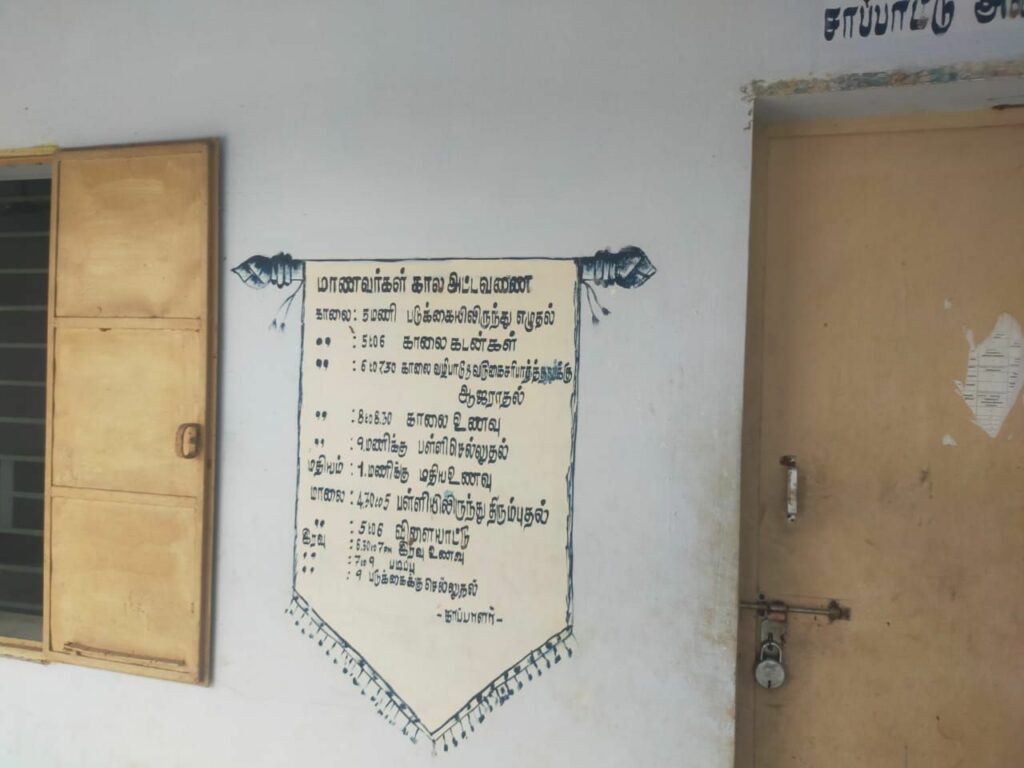 சாப்பாட்டு
மாணவர்கள் கால அட்டவணை
காலை : 5 மணி படுக்கையிலிருந்து எழுதல்
" : 5 to 6 காலை கடன்கள்
" : 6 to 7.30 காலை வழிபாடு
ஆஜராதல்
" : 8 to 8.30 காலை உணவு
" : 9.மணிக்கு பள்ளிசெல்லுதல்
மதியம் : 1.மணிக்கு மதியஉணவு
மாலை : 4.30 to 5 பள்ளியிலிருந்து திரும்புதல்
" : 5 to 6 விளையாட்டு
இரவு : 6.30 to 7 PM இரவு உணவு
" : 7 to 9 படிப்பு
" : 9 படுக்கைக்குசெல்லுதல்
- காப்பாளர் -